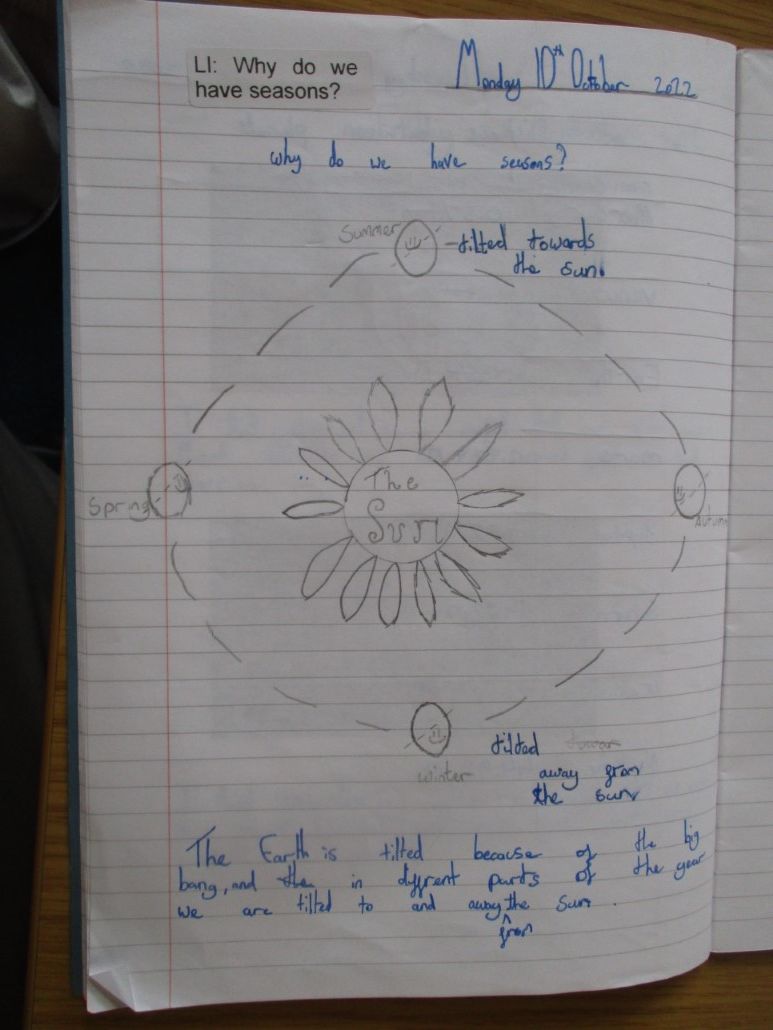 LI: Why do we
have seasons?
Monday 10th October 2022
why do we have seasons?
Summer
-tilted towards
the sun.
The
Sun
Spring
Autumn
tilted towar
away from
the sun
winter
The Earth is tilted because of the big
bang, and the in diffrent parts of the year
we are tilted to and away the Sun.
from